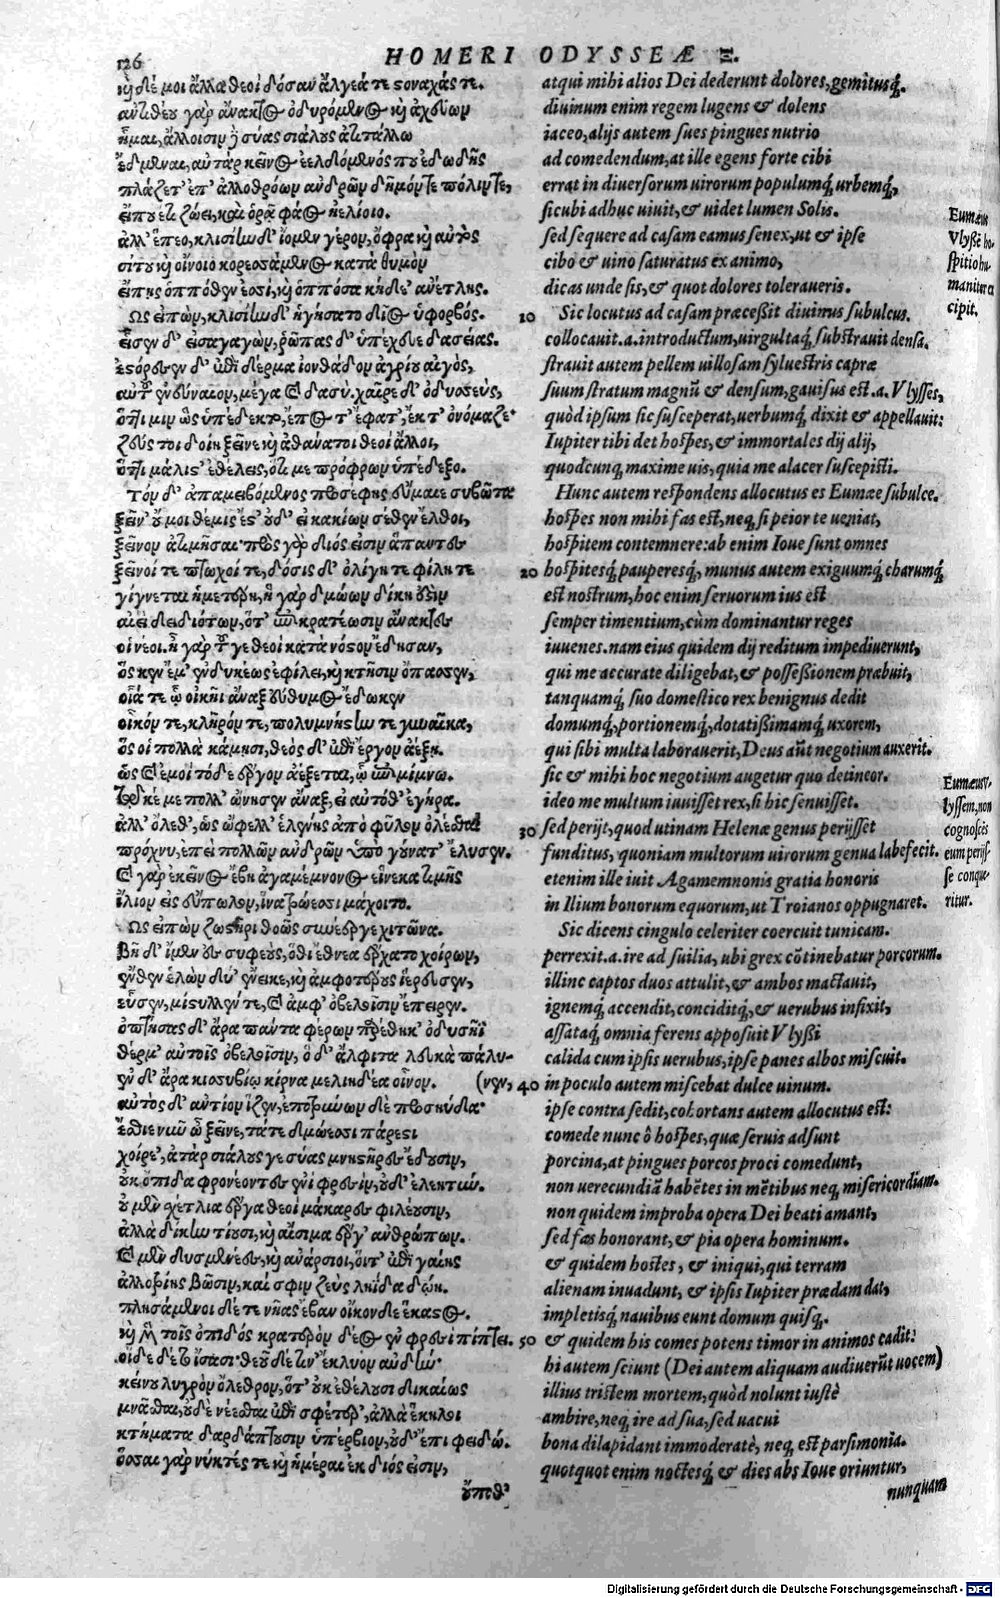 126
HOMERI ODYSSEÆ Ξ.
καὶ δέ μοι ἄλλα θεοὶ δόσαν ἄλγεά τε στοναχάς τε.
ἀντιθέου γὰρ ἄνακτος ὀδυρόμενος καὶ ἀχεύων
ἧμαι, ἄλλοισιν δὲ σύας σιάλους ἀτιτάλλω
ἔδμεναι, αὐτὰρ κεῖνος ἐελδόμενός που ἐδωδῆς
πλάζετ' ἐπ' ἀλλοθρόων ἀνδρῶν δῆμόν τε πόλιν τε,
εἴπου ἔτι ζώει, καὶ ὁρᾷ φάος ἠελίοιο.
ἀλλ' ἕπεο, κλισίην δ' ἴομεν γέρον, ὄφρα καὶ αὐτὸς
σίτου καὶ οἴνοιο κορεσσάμενος κατὰ θυμὸν
εἴπῃς ὁππόθεν ἐσσί, καὶ ὁππόσα κήδε' ἀνέτλης.
Ὣς εἰπὼν, κλισίην δ' ἡγήσατο δῖος ὑφορβός.
εἷσεν δ' εἰσαγαγὼν, ῥῶπας δ' ὑπέχευε δασείας.
ἐστόρεσεν δ' ἐπὶ δέρμα ἰονθάδον ἀγρίου αἰγὸς,
αὐτοῦ ἐνεύναιον, μέγα καὶ δασύ. χαῖρε δ' ὀδυσσεύς,
ὅττι μιν ὣς ὑπέδεκτο, ἔπος τ' ἔφατ', ἔκ τ' ὀνόμαζε·
ζεύς τοι δοίη ξεῖνε καὶ ἀθάνατοι θεοὶ ἄλλοι,
ὅττι μάλιστ' ἐθέλεις, ὅτι με πρόφρων ὑπέδεξο.
Τὸν δ' ἀπαμειβόμενος προσέφης εὔμαιε συβῶτα
ξεῖν' οὔ μοι θέμις ἔστ' οὐδ' εἰ κακίων σέθεν ἔλθοι,
ξεῖνον ἀτιμῆσαι· πρὸς γὰρ διός εἰσιν ἅπαντες
ξεῖνοί τε πτωχοί τε, δόσις δ' ὀλίγη τε φίλη τε
γίγνεται ἡμετέρη, ἡ γὰρ δμώων δίκη ἐστὶν
αἰεὶ δειδιότων, ὅτ' ἐπικρατέωσιν ἄνακτες
οἱ νέοι. ἦ γὰρ τοῦ γε θεοὶ κατὰ νόστον ἔδησαν,
ὅς κεν ἔμ' ἐνδυκέως ἐφίλει, καὶ κτῆσιν ὄπασσεν,
οἷά τε ᾧ οἰκῆι ἄναξ εὔθυμος ἔδωκεν
οἶκόν τε, κλῆρόν τε, πολυμνήστην τε γυναῖκα,
ὅς οἱ πολλὰ κάμησι, θεὸς δ' ἐπὶ ἔργον ἀέξῃ.
ὡς καὶ ἐμοὶ τόδε ἔργον ἀέξεται, ᾧ ἐπιμίμνω.
τῷ κέ με πολλ' ὤνησεν ἄναξ, εἰ αὐτόθ' ἐγήρα.
ἀλλ' ὄλεθ', ὡς ὤφελλ' ἑλένης ἀπὸ φῦλον ὀλέσθαι
πρόχνυ, ἐπεὶ πολλῶν ἀνδρῶν ὑπὸ γούνατ' ἔλυσεν.
καὶ γὰρ ἐκεῖνος ἔβη ἀγαμέμνονος εἵνεκα τιμῆς
ἴλιον εἰς εὔπωλον, ἵνα τρώεσσι μάχοιτο.
Ὣς εἰπὼν ζωστῆρι θοῶς συνέεργε χιτῶνα.
βῆ δ' ἴμεν ἐς συφεοὺς, ὅθι ἔθνεα ἔρχατο χοίρων,
ἔνθεν ἑλὼν δύ' ἔνεικε, καὶ ἀμφοτέρους ἱέρευσεν,
εὗσεν, μίστυλλέν τε, καὶ ἀμφ' ὀβελοῖσιν ἔπειρεν.
ὀπτήσας δ' ἄρα πάντα φέρων παρέθηκ' ὀδυσῆϊ
θέρμ' αὐτοῖς ὀβελοῖσιν, ὁ δ' ἄλφιτα λευκὰ πάλυ-
ἐν δ' ἄρα κισσυβίῳ κίρνα μελιηδέα οἶνον. (νεν,
αὐτὸς δ' ἀντίον ἷζεν, ἐποτρύνων δὲ προσηύδα·
ἔσθιε νῦν ὦ ξεῖνε, τά τε δμώεσσι πάρεστι
χοίρε', ἀτὰρ σιάλους γε σύας μνηστῆρες ἔδουσιν,
οὐκ ὄπιδα φρονέοντες ἐνὶ φρεσὶν, οὐδ' ἐλεητύν.
οὐ μὲν σχέτλια ἔργα θεοὶ μάκαρες φιλέουσιν,
ἀλλὰ δίκην τίουσι, καὶ αἴσιμα ἔργ' ἀνθρώπων.
καὶ μὲν δυσμενέες, καὶ ἀνάρσιοι, οἵτ' ἐπὶ γαίης
ἀλλοτρίης βῶσιν, καί σφιν ζεὺς ληΐδα δώῃ.
πλησάμενοι δέ τε νῆας ἔβαν οἶκονδε ἕκαστος.
καὶ μὲν τοῖς ὄπιδός κρατερὸν δέος ἐν φρεσὶ πίπτει.
οἵδε δέ τι ἴσασι· θεοῦ δέ τιν' ἔκλυον αὐδὴν·
κείνου λυγρὸν ὄλεθρον, ὅτ' οὐκ ἐθέλουσι δικαίως
μνᾶσθαι, οὐδὲ νέεσθαι ἐπὶ σφέτερ', ἀλλὰ ἕκηλοι
κτήματα δαρδάπτουσιν ὑπέρβιον, οὐδ' ἔπι φειδώ.
ὅσσαι γὰρ νύκτές τε καὶ ἡμέραι ἐκ διός εἰσιν,
οὔποθ'
atqui mihi alios Dei dederunt dolores, gemitusq́.
diuinum enim regem lugens & dolens
iaceo, alijs autem sues pingues nutrio
ad comedendum, at ille egens forte cibi
errat in diuersorum uirorum populumq́, urbemq́,
sicubi adhuc uiuit, & uidet lumen Solis.
sed sequere ad casam eamus senex, ut & ipse
cibo & uino saturatus ex animo,
dicas unde sis, & quot dolores toleraueris.
10 Sic locutus ad casam præcessit diuinus subulcus.
collocauit.a.introductum, uirgultaq́, substrauit densa.
strauit autem pellem uillosam syluestris capræ
suum stratum magnũ & densum, gauisus est.a. Vlysses,
quòd ipsum sic susceperat, uerbumq́, dixit & appellauit:
Iupiter tibi det hospes, & immortales dij alij,
quodcunq́, maxime uis, quia me alacer suscepisti.
Hunc autem respondens allocutus es Eumæe subulce.
hospes non mihi fas est, neq́, si peior te ueniat,
hospitem contemnere: ab enim Ioue sunt omnes
20 hospitesq́, pauperesq́, munus autem exiguumq́, charumq́
est nostrum, hoc enim seruorum ius est
semper timentium, cùm dominantur reges
iuuenes. nam eius quidem dij reditum impediuerunt,
qui me accurate diligebat, & possessionem præbuit,
tanquamq́, suo domestico rex benignus dedit
domumq́, portionemq́, dotatissimamq́, uxorem,
qui sibi multa laborauerit, Deus aũt negotium auxerit.
sic & mihi hoc negotium augetur quo detineor.
ideo me multum iuuisset rex, si hic senuisset.
30 sed perijt, quod utinam Helenæ genus perijsset
funditus, quoniam multorum uirorum genua labefecit.
etenim ille iuit Agamemnonis gratia honoris
in Ilium bonorum equorum, ut Troianos oppugnaret.
Sic dicens cingulo celeriter coercuit tunicam.
perrexit.a.ire ad suilia, ubi grex cõtinebatur porcorum.
illinc captos duos attulit, & ambos mactauit,
ignemq́, accendit, conciditq́, & uerubus infixit,
assataq́, omnia ferens apposuit Vlyssi
calida cum ipsis uerubus, ipse panes albos miscuit.
40 in poculo autem miscebat dulce uinum.
ipse contra sedit, cohortans autem allocutus est:
comede nunc ô hospes, quæ seruis adsunt
porcina, at pingues porcos proci comedunt,
non uerecundiã habẽtes in mẽtibus neq́, misericordiam.
non quidem improba opera Dei beati amant,
sed fas honorant, & pia opera hominum.
& quidem hostes, & iniqui, qui terram
alienam inuadunt, & ipsis Iupiter prædam dat,
impletisq́, nauibus eunt domum quisq́.
50 & quidem his comes potens timor in animos cadit:
hi autem sciunt (Dei autem aliquam audiuerũt uocem)
illius tristem mortem, quòd nolunt iustè
ambire, neq́, ire ad sua, sed uacui
bona dilapidant immoderatè, neq́, est parsimonia.
quotquot enim noctesq́, & dies abs Ioue oriuntur,
nunquam
Eumæus
Vlyssẽ ho-
spitio hu-
maniter ex
cipit.
Eumæus V-
lyssem, non
cognoscẽs
eum perijs-
se conque-
ritur.
Digitalisierung gefördert durch die Deutsche Forschungsgemeinschaft - DFG